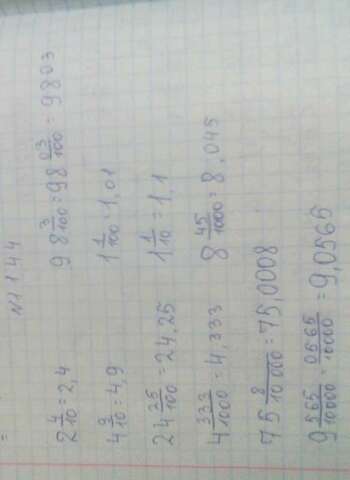 N1144
2 4/10 = 2,4
98 3/100 = 98 03/100 = 9803
4 9/10 = 4,9
1 1/100 = 1,01
24 25/100 = 24,25
1 1/10 = 1,1
4 333/1000 = 4,333
8 45/1000 = 8,045
75 8/10 000 = 75,0008
9 565/10000 = 0565/10000 = 9,0565